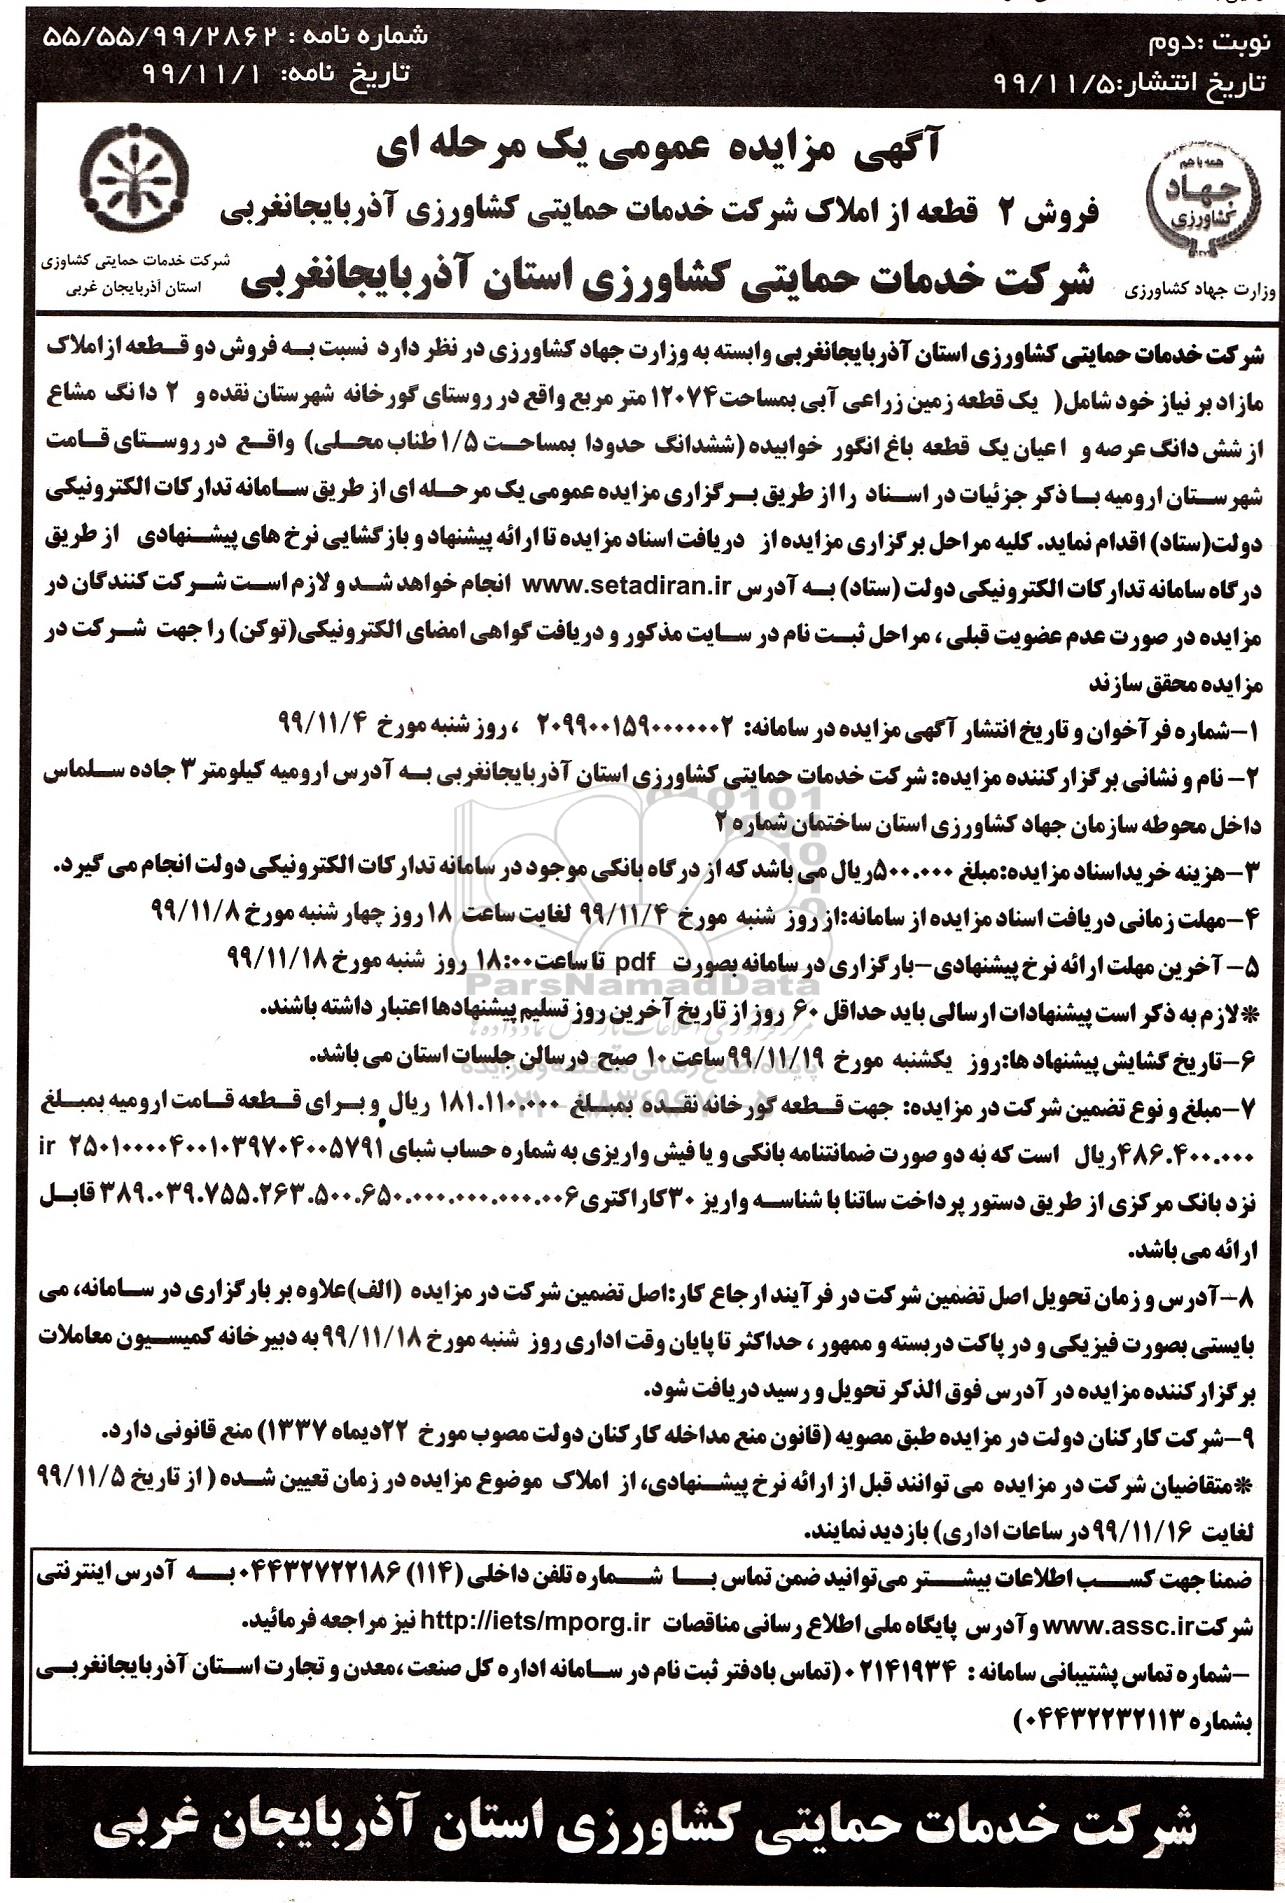 نوبت :دوم
شماره نامه : ۵۵/۵۵/۹۹/۲۸۶۲
تاریخ انتشار:۹۹/۱۱/۵
تاریخ نامه: ۹۹/۱۱/۱
همه با هم
جهاد
کشاورزی
وزارت جهاد کشاورزی
آگهی مزایده عمومی یک مرحله ای
فروش ۲ قطعه از املاک شرکت خدمات حمایتی کشاورزی آذربایجانغربی
شرکت خدمات حمایتی کشاورزی استان آذربایجانغربی
شرکت خدمات حمایتی کشاوزی
استان آذربایجان غربی
شرکت خدمات حمایتی کشاورزی استان آذربایجانغربی وابسته به وزارت جهاد کشاورزی در نظر دارد نسبت به فروش دو قطعه از املاک
مازاد بر نیاز خود شامل( یک قطعه زمین زراعی آبی بمساحت۱۲۰۷۴ متر مربع واقع در روستای گورخانه شهرستان نقده و ۲ دانگ مشاع
از شش دانگ عرصه و اعیان یک قطعه باغ انگور خوابیده (ششدانگ حدودا بمساحت ۱/۵ طناب محلی) واقع در روستای قامت
شهرستان ارومیه با ذکر جزئیات در اسناد را از طریق برگزاری مزایده عمومی یک مرحله ای از طریق سامانه تدارکات الکترونیکی
دولت(ستاد) اقدام نماید. کلیه مراحل برگزاری مزایده از دریافت اسناد مزایده تا ارائه پیشنهاد و بازگشایی نرخ های پیشنهادی از طریق
درگاه سامانه تدارکات الکترونیکی دولت (ستاد) به آدرس www.setadiran.ir انجام خواهد شد و لازم است شرکت کنندگان در
مزایده در صورت عدم عضویت قبلی ، مراحل ثبت نام در سایت مذکور و دریافت گواهی امضای الکترونیکی(توکن) را جهت شرکت در
مزایده محقق سازند
۱-شماره فرآخوان و تاریخ انتشار آگهی مزایده در سامانه: ۲۰۹۹۰۰۱۵۹۰۰۰۰۰۰۲ ، روز شنبه مورخ ۹۹/۱۱/۴
۲- نام و نشانی برگزار کننده مزایده: شرکت خدمات حمایتی کشاورزی استان آذربایجانغربی به آدرس ارومیه کیلومتر ۳ جاده سلماس
داخل محوطه سازمان جهاد کشاورزی استان ساختمان شماره ۲
۳-هزینه خریداسناد مزایده:مبلغ ۵۰۰.۰۰۰ریال می باشد که از درگاه بانکی موجود در سامانه تدارکات الکترونیکی دولت انجام می گیرد.
۴-مهلت زمانی دریافت اسناد مزایده از سامانه:از روز شنبه مورخ ۹۹/۱۱/۴ لغایت ساعت ۱۸ روز چهار شنبه مورخ ۹۹/۱۱/۸
۵- آخرین مهلت ارائه نرخ پیشنهادی-بارگزاری در سامانه بصورت pdf تا ساعت۱۸:۰۰ روز شنبه مورخ ۹۹/۱۱/۱۸
*لازم به ذکر است پیشنهادات ارسالی باید حداقل ۶۰ روز از تاریخ آخرین روز تسلیم پیشنهادها اعتبار داشته باشند.
۶-تاریخ گشایش پیشنهاد ها:روز یکشنبه مورخ ۹۹/۱۱/۱۹ساعت ۱۰ صبح درسالن جلسات استان می باشد.
۷-مبلغ و نوع تضمین شرکت در مزایده: جهت قطعه گورخانه نقده بمبلغ ۱۸۱.۱۱۰.۰۰۰ ریال و برای قطعه قامت ارومیه بمبلغ
۴۸۶.۴۰۰.۰۰۰ریال است که به دو صورت ضمانتنامه بانکی و یا فیش واریزی به شماره حساب شبای ۲۵۰۱۰۰۰۰۴۰۰۱۰۳۹۷۰۴۰۰۵۷۹۱ ir
نزد بانک مرکزی از طریق دستور پرداخت ساتنا با شناسه واریز ۳۰کاراکتری۳۸۹.۰۳۹.۷۵۵.۲۶۳.۵۰۰.۶۵۰.۰۰۰.۰۰۰.۰۰۰.۰۰۶ قابل
ارائه می باشد.
۸-آدرس و زمان تحویل اصل تضمین شرکت در فرآیند ارجاع کار:اصل تضمین شرکت در مزایده (الف)علاوه بر بارگزاری در سامانه، می
بایستی بصورت فیزیکی و در پاکت دربسته و ممهور ، حداکثر تا پایان وقت اداری روز شنبه مورخ ۹۹/۱۱/۱۸ به دبیرخانه کمیسیون معاملات
برگزار کننده مزایده در آدرس فوق الذکر تحویل و رسید دریافت شود.
۹-شرکت کارکنان دولت در مزایده طبق مصوبه (قانون منع مداخله کارکنان دولت مصوب مورخ ۲۲دیماه ۱۳۳۷) منع قانونی دارد.
*متقاضیان شرکت در مزایده می توانند قبل از ارائه نرخ پیشنهادی، از املاک موضوع مزایده در زمان تعیین شده ( از تاریخ ۹۹/۱۱/۵
لغایت ۹۹/۱۱/۱۶ در ساعات اداری) بازدید نمایند.
ضمنا جهت کسب اطلاعات بیشتر می‌توانید ضمن تماس با شماره تلفن داخلی (۱۱۴) ۰۴۴۳۲۷۲۲۱۸۶ به آدرس اینترنتی
شرکتwww.assc.ir و آدرس پایگاه ملی اطلاع رسانی مناقصات http://iets/mporg.ir نیز مراجعه فرمائید.
-شماره تماس پشتیبانی سامانه : ۰۲۱۴۱۹۳۴ (تماس بادفتر ثبت نام در سامانه اداره کل صنعت ،معدن و تجارت استان آذربایجانغربی
بشماره ۰۴۴۳۲۲۳۲۱۱۳)
شرکت خدمات حمایتی کشاورزی استان آذربایجان غربی
ParsNamadData